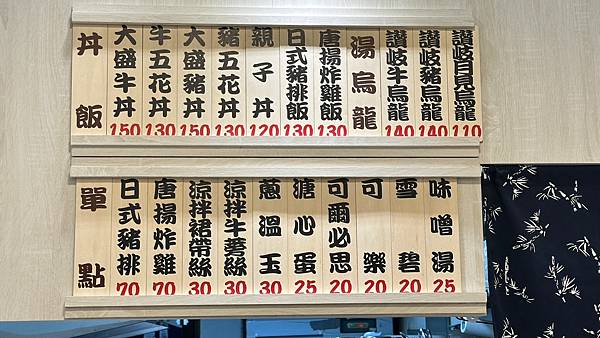 丼飯
大盛牛丼 150
牛五花丼 130
大盛豬丼 150
豬五花丼 130
親子丼 120
日式豬排飯 130
唐揚炸雞飯 130
湯烏龍
讚岐牛烏龍 140
讚岐豬烏龍 140
讚岐月見烏龍 110
單點
日式豬排 70
唐揚炸雞 70
涼拌裙帶絲 30
涼拌牛蒡絲 30
蔥溫玉 30
溏心蛋 25
可爾必思 20
可樂 20
雪碧 20
味噌湯 25